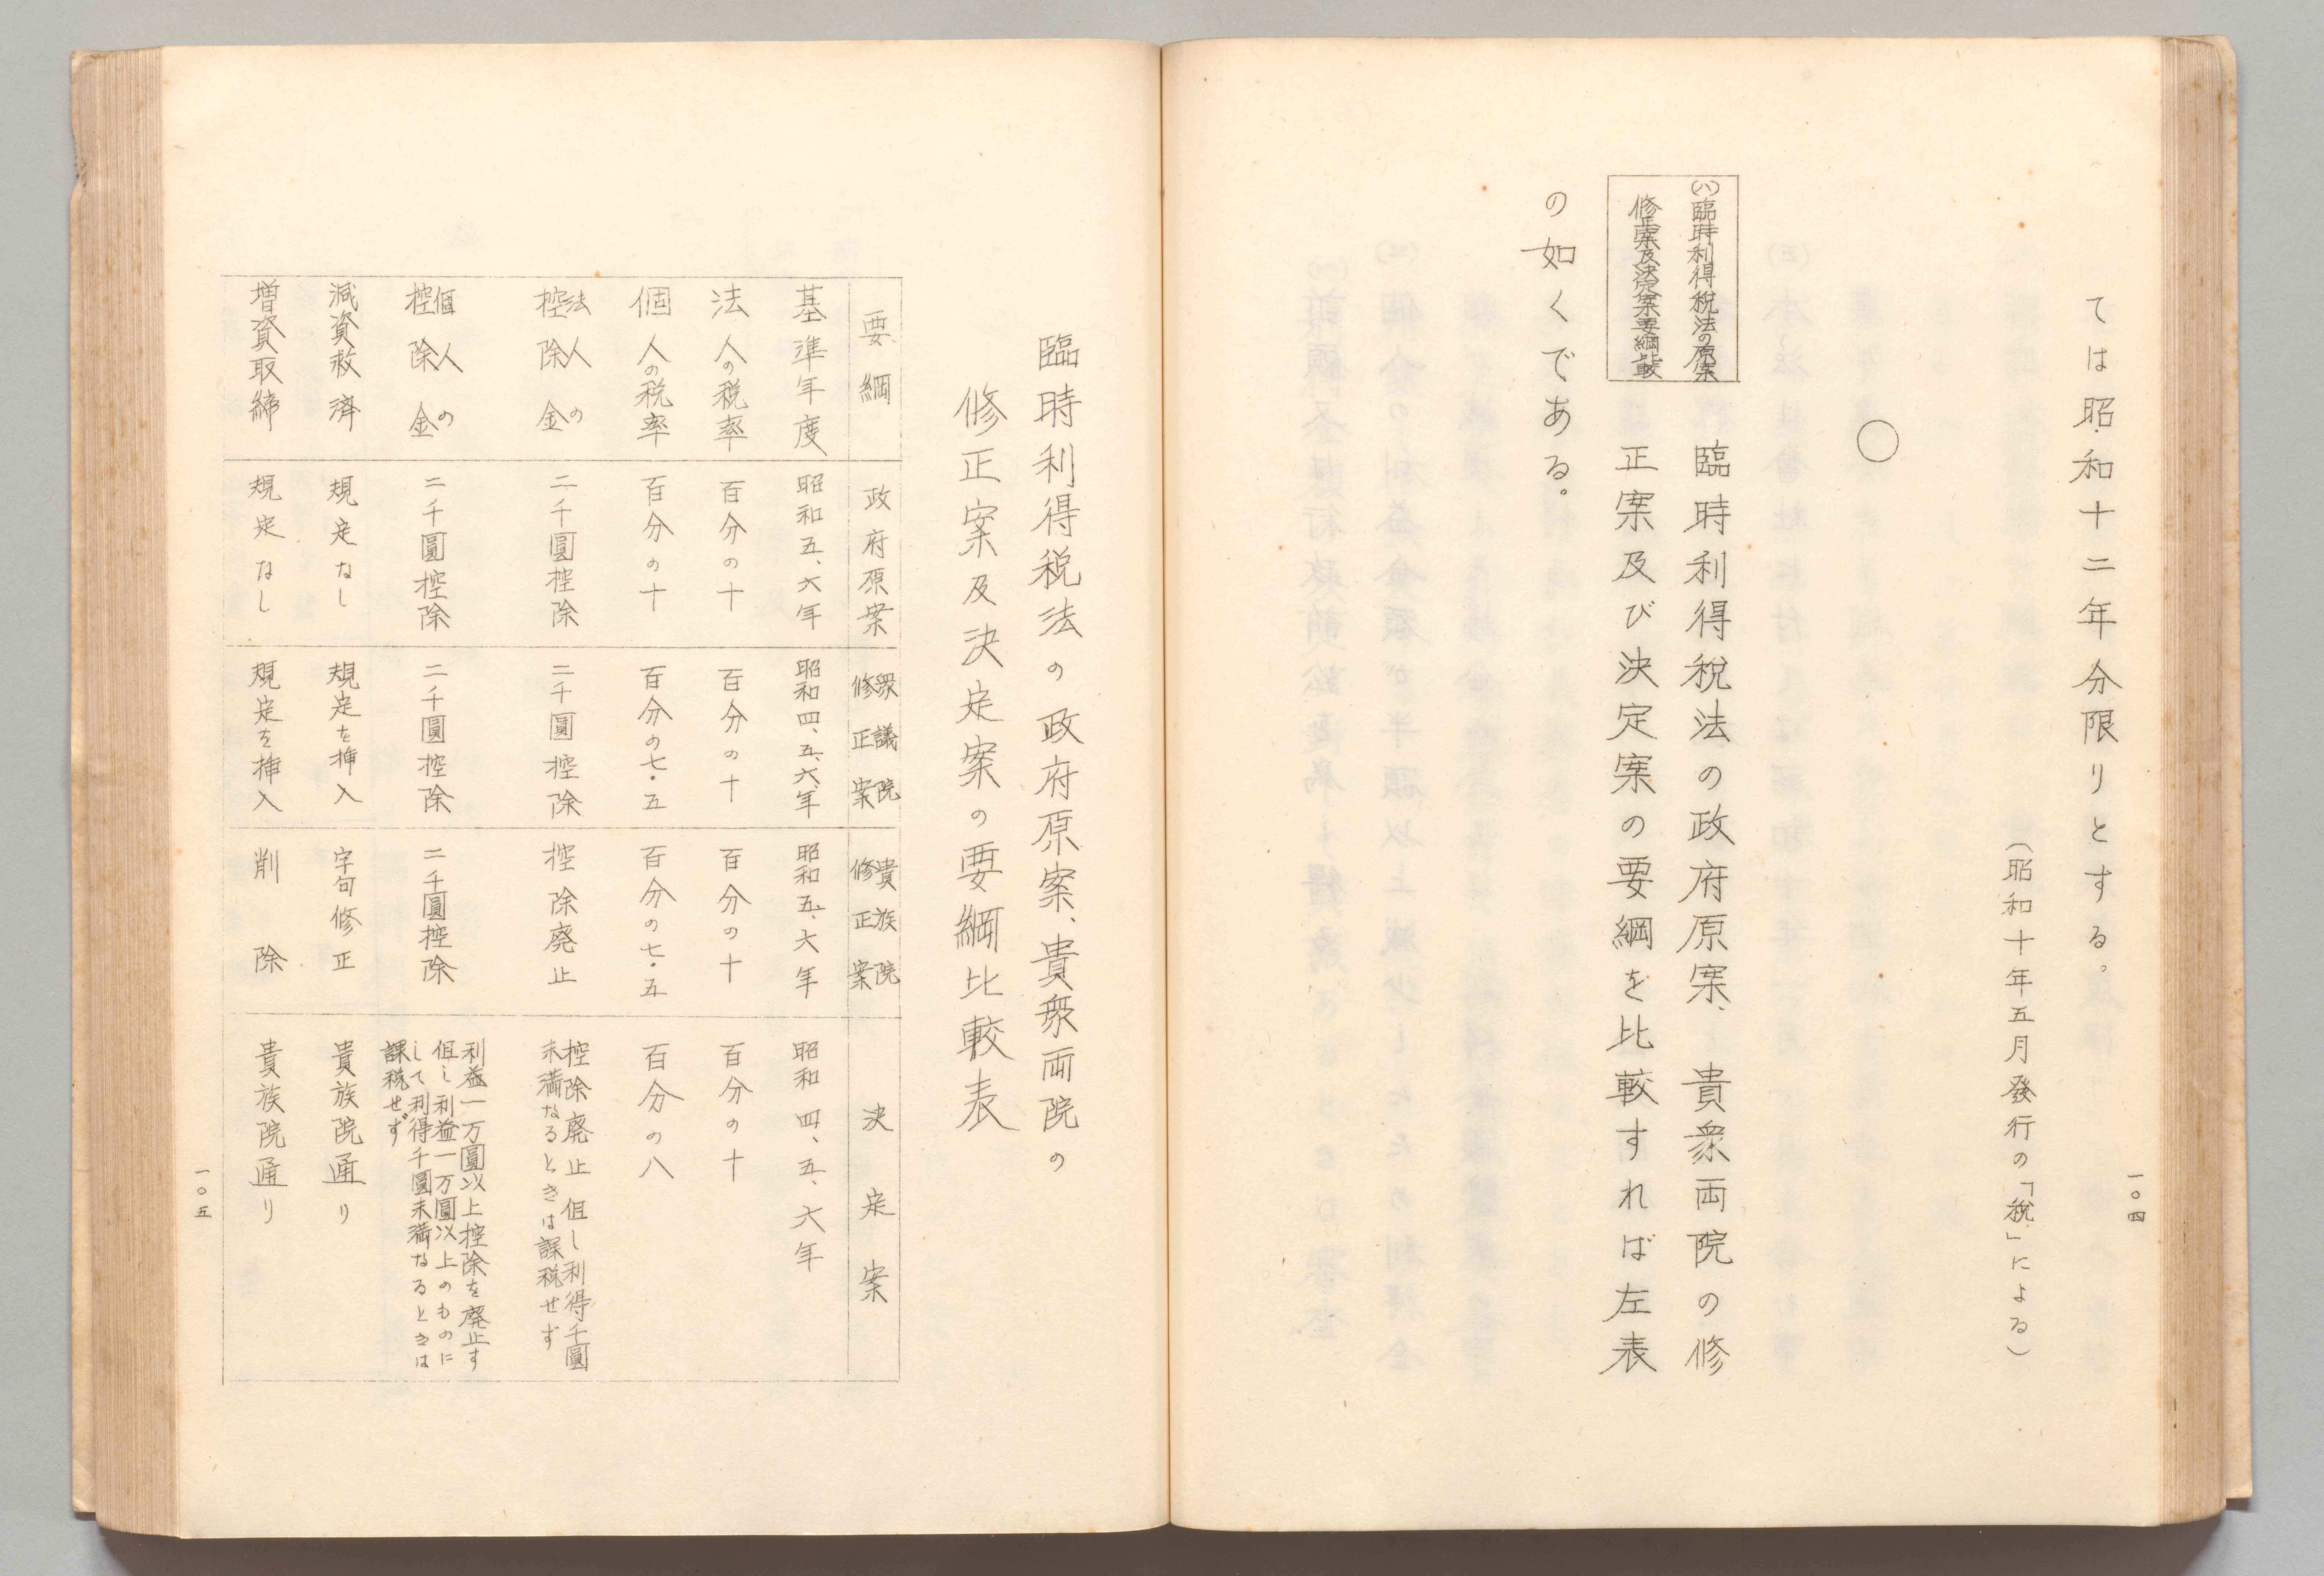 ては昭和十二年分限りとする。
（昭和十年五月發行の「税」による）
○
(八)臨時利得税法の原案
修正案及決定案要綱比較
臨時利得税法の政府原案、貴衆両院の修
正案及び決定案の要綱を比較すれば左表
の如くである。
一〇四
臨時利得税法の政府原案、貴衆両院の
修正案及決定案の要綱比較表
要綱
政府原案
衆議院
修正案
貴族院
修正案
決定案
基準年度
昭和五、六年
昭和四、五、六年
昭和五、六年
昭和四、五、六年
法人の税率
百分の十
百分の十
百分の十
百分の十
個人の税率
百分の十
百分の七・五
百分の七・五
百分の八
法人の
控除金
二千圓控除
二千圓控除
控除廃止
控除廃止但し利得千圓
未満なるときは課税せず
個人の
控除金
二千圓控除
二千圓控除
二千圓控除
利益一万圓以上控除を廃止す
但し利益一万圓以上のものに
して利得千圓未満なるときは
課税せず
減資救済
規定なし
規定を挿入
字句修正
貴族院通り
増資取締
規定なし
規定を挿入
削除
貴族院通り
一〇五